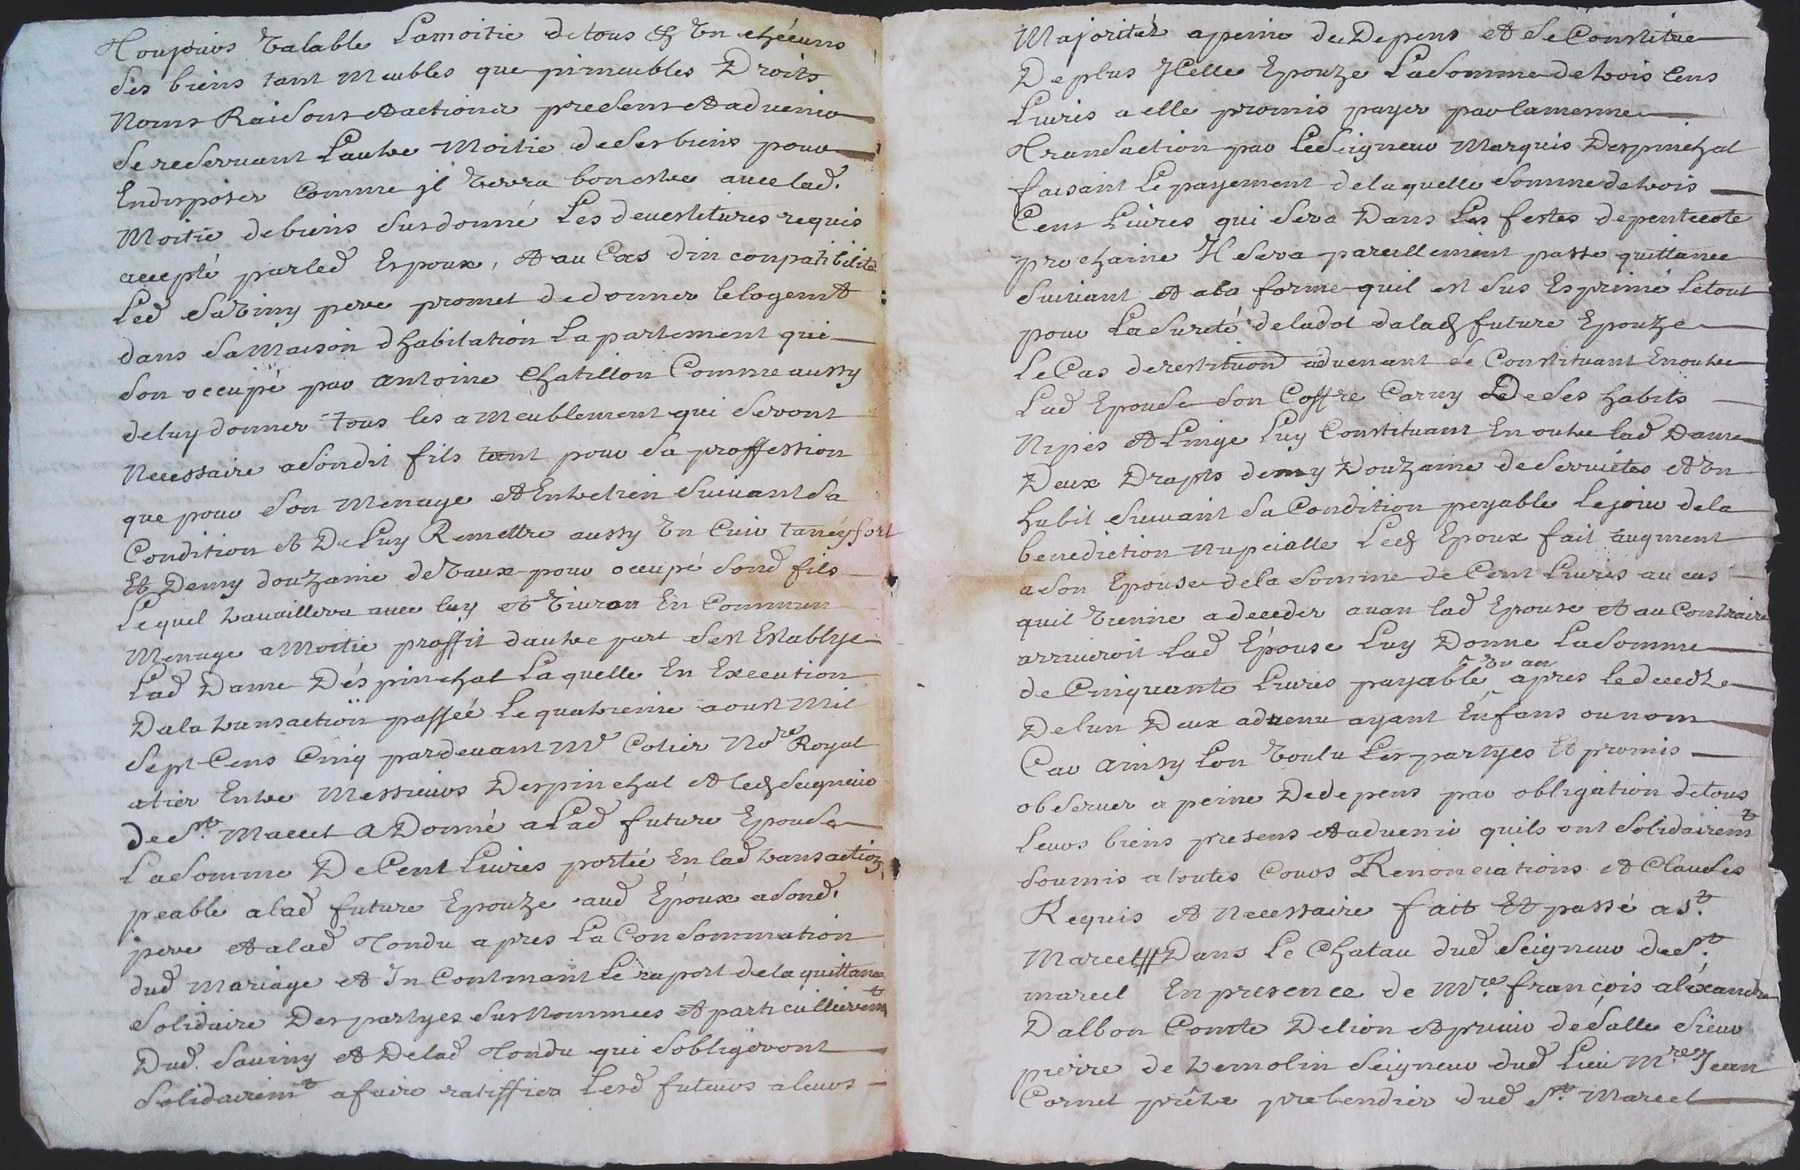 Toujours valable La moitié de tous et un chécuns
Ses biens tant Meubles que jmmeubles Droits
Noms Raisons et actions presens et advenir
Se reservant Lautre Moitié de ses biens pour
En disposer Comme jl verra bon estre avec lad.
Moitié de biens Susdonné Les devestitures requis
accepté par led Espoux, et au Cas din conpatibilité
Led Saviny pere promet de donner le logemt
dans Sa Maison dhabitation Lapartement qui
Son occupé par antoine Chatillon Comme aussy
de luy donner tous les ameublement qui Seront
Necessaire a Sondit fils tant pour Sa proffession
que pour Son Menage et Entretien Suivant Sa
Condition et De Luy Remettre aussy un Cuir tanéy fort
Et Demy douzaine de Vaux pour occupé Sond fils
Lequel travaillera avec luy et Vivron En Commun
Menage a Moitié proffit dautre part Sest Establye
Lad Dame Déspinchal Laquelle En Execution
Dala transaction passéé Le quatrieme aoust Mil
Sept Cens Cinq pardevant Me Cotier Nore Royal
atier Entre Messieurs Despinchal et led Seigneur
De St Marcel a Donné a Lad future Epouse
La Somme De Cent Livres portée En lad transaction
peable a lad future Epouze aud Époux a Sond.
pere et a lad Tondu apres La Consommation
dud Mariage et In Continant Le raport de la quittance
Solidaire Des partyes Sus Nommees et particullieremt
Dud. Saviny et De lad Tondu qui Sobligeront
Solidairemt a faire ratiffier Lesd futeurs a leurs
Majorités a peine de Depens et Se Constitue
De plus Jcelle Epouze La Somme de trois Cens
Livres a elle promis payer par la mesme
Transaction par Le Seigneur Marquis Despinchal
faisant Le payement de laquelle Somme de trois
Cent Livres qui Sera Dans Les festes de pentecote
prochaine Il Sera pareillement passe quittance
Suivant et a la forme quil est Sus Esprimé Le tout
pour La Sureté de la dot da lad future Epouze
Le Cas de restituon advenant Se Constituant En outre
Lad Epouse Son Coffre Garny De Ses habits
Nipes et Linge Luy Constituant En outre lad Dame
Deux Drapts demy Douzaine de Serviétes et un
habit Suivant Sa Condition peyable Le jour de la
benediction Nupcialle Led Epoux fait augment
a Son Epouse de la Somme de Cent Livres au cas
quil Vienne a deceder avan lad Epouse et au Contraire
arriveroit Lad Épouse Luy Donne La Somme
de Cinquante Livres payable un an apres Le decedz
De lun Deux advenu ayant Énfans ou non
Car ainsy Lon Voulu Les partyes Et promis
observer a peine De depens par obligation de tous
Leurs biens presens et advenir quils ont Solidairemt
Soumis a toutes Cours Renonciations et Clauses
Requis et Necessaire fait Et passé a St.
Marcel Dans Le Chatau dud Seigneur de St.
marcel En presence de Mre. françois aléxandre
Dalbon Comte De lion et prieur de Salle Sieur
pierre de tremolin Seigneur dud Lieu Mres Jean
Cornet prêtre prebendier dud St. Marcel